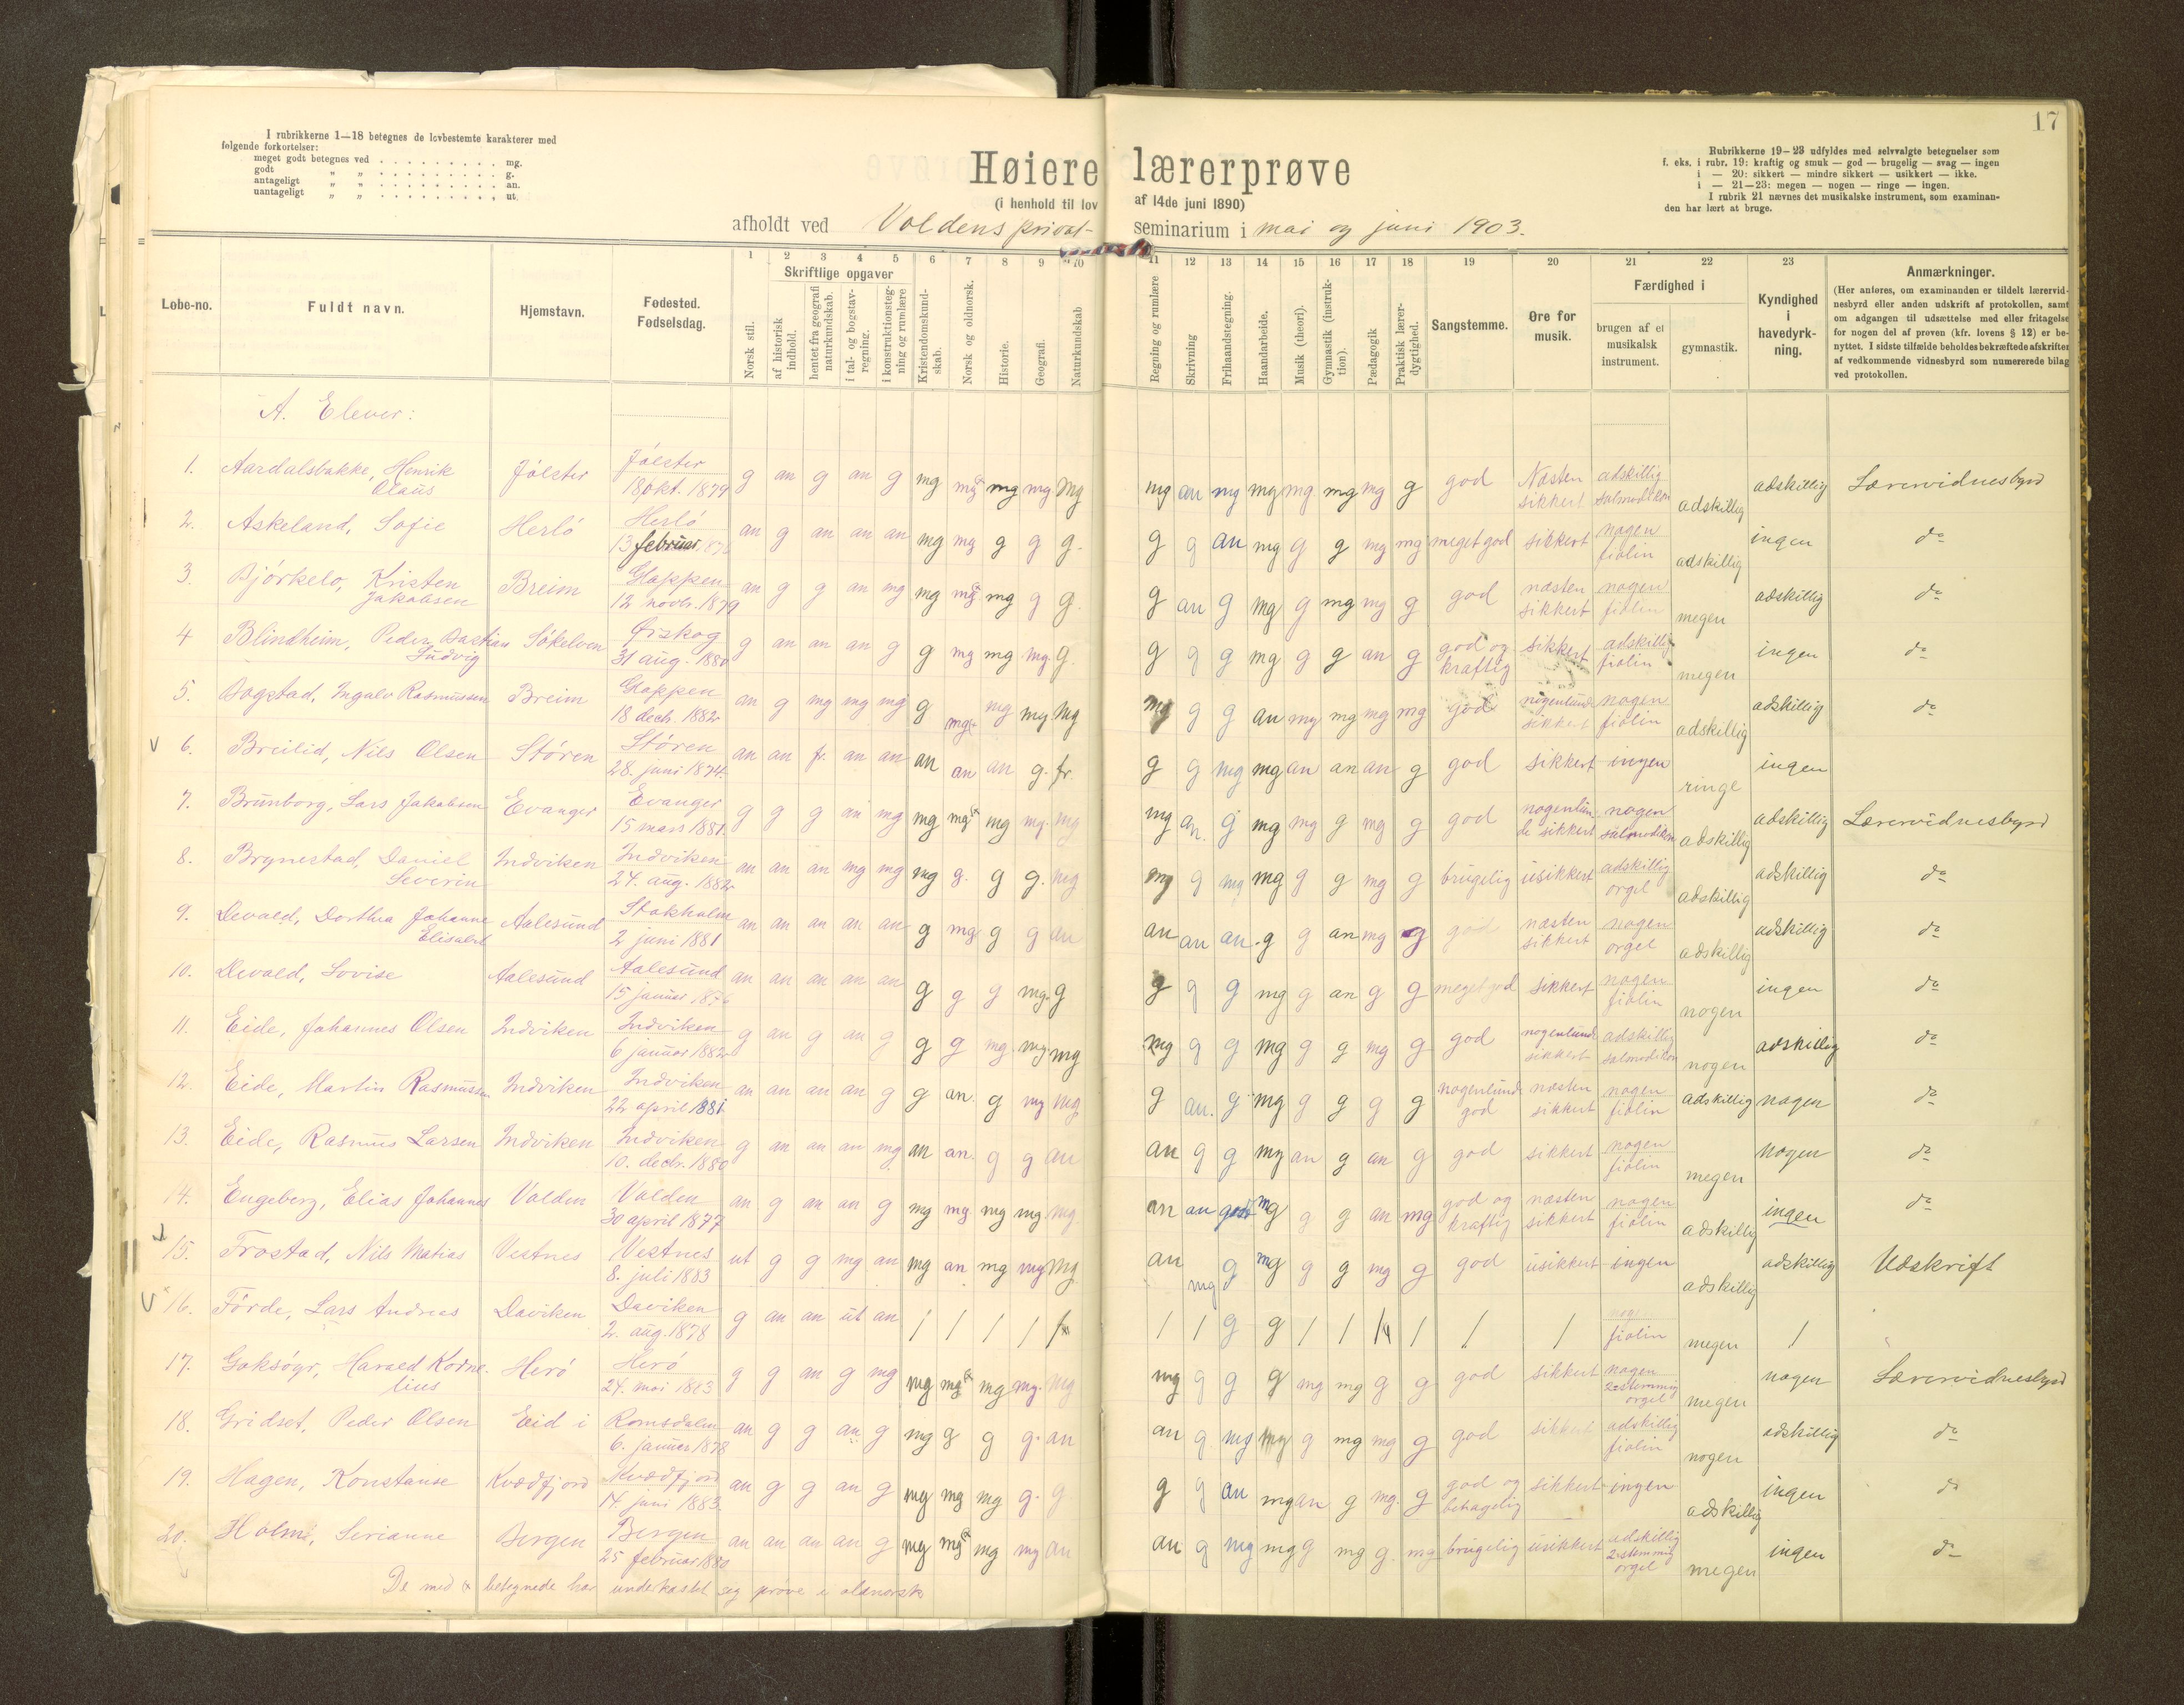 17
I rubrikkerne 1—18 betegnes de lovbestemte karakterer med
følgende forkortelser:
meget godt betegnes ved . . . . . . . . . mg.
godt " " . . . . . . . . . g.
antageligt " " . . . . . . . . . an.
uantageligt " " . . . . . . . . . ut.
Høiere lærerprøve
(i henhold til lov af 14de juni 1890)
afholdt ved Voldens privat- seminarium i mai og juni 1903.
Rubrikkerne 19—23 udfyldes med selvvalgte betegnelser som
f. eks. i rubr. 19: kraftig og smuk — god — brugelig — svag — ingen
i — 20: sikkert — mindre sikkert — usikkert — ikke.
i — 21—23: megen — nogen — ringe — ingen.
I rubrik 21 nævnes det musikalske instrument, som examinan-
den har lært at bruge.
Løbe-no.
Fuldt navn.
Hjemstavn.
Fødested.
Fødselsdag.
1 Norsk stil.
Skriftlige opgaver
2 af historisk indhold.
3 hentet fra geografi naturkundskab.
4 i tal- og bogstav-regning.
5 i konstruktionsteg-ning og rumlære
6 Kristendomskund-skab.
7 Norsk og oldnorsk.
8 Historie.
9 Geografi.
10 Naturkundskab
11 Regning og rumlære
12 Skrivning
13 Frihaandstegning.
14 Haandarbeide.
15 Musik (theori).
16 Gymnastik (instruk-tion).
17 Pædagogik
18 Praktisk lærer-dygtighed.
19 Sangstemme.
20 Øre for musik.
Færdighed i
21 brugen af et musikalsk instrument.
22 gymnastik.
23 Kyndighed i havedyrk-ning.
Anmærkninger.
(Her anføres, om examinanden er tildelt lærervid-
nesbyrd eller anden udskrift af protokollen, samt
om adgangen til udsættelse med eller fritagelse
for nogen del af prøven (kfr. lovens § 12) er be-
nyttet. I sidste tilfælde beholdes bekræftede afskrifter
af vedkommende vidnesbyrd som numererede bilag
ved protokollen.
A. Elever:
1. Aardalsbakke, Henrik Olaus Jölster Jölster 18 okt. 1879 g an g an g mg mg x mg mg mg mg an mg mg mg mg mg g god Næsten sikkert adskillig salmodikon adskillig adskillig Lærervidnesbyrd
2. Askeland, Sofie Herlö Herlö 13 februar an g an an an mg mg g g g. g g an mg g g mg mg meget god sikkert nogen fiolin adskillig ingen do
3. Björkelo, Kristen Jakobsen Breim Gloppen 12 novbr. 1879 an g g an mg mg mg x mg g g. g an g mg g mg mg g god næsten sikkert nogen fiolin megen adskillig do
4 Blindheim, Peder Bastian Ludvig Sökelven Ørskog 31 aug. 1880 g an an an g g mg mg mg g. g g g mg g g an g god og kraftig sikkert adskillig fiolin megen ingen do
5. Bogstad, Ingolv Rasmussen Breim Gloppen 18 decb. 1882 an g mg mg mg g mg x mg mg mg mg g g an mg mg mg mg god nogenlunde sikkert nogen fiolin adskillig adskillig do
v 6. Breilid, Nils Olsen Stören Stören 28. juni 1874. an an fr. an an an an an g. fr. g g mg mg an an an g god sikkert ingen ringe ingen
7. Brunborg, Lars Jakobsen Evanger Evanger 15 mars 1881. g g g an mg mg mg x mg mg. mg mg an. g mg mg g mg g god nogenlunde sikkert nogen salmodikon adskillig adskillig Lærervidnesbyrd
8. Brynestad, Daniel Severin Indviken Indviken 24. aug. 1882 an an an mg mg mg g. g g. mg mg g mg mg g g mg g brugelig usikkert adskillig orgel adskillig adskillig do
9. Devold, Dorthea Johanne Elisabet Aalesund Stokholm 2 juni 1881 an an an an an g mg g g an an an an g g an mg g god næsten sikkert nogen orgel adskillig adskillig do
10. Devold, Lovise Aalesund Aalesund 15 januar 1876 an an an an an g g g mg. g g g g mg g an g g meget god sikkert nogen fiolin nogen ingen do
11. Eide, Johannes Olsen Indviken Indviken 6 januar 1882 g an g an g g g mg mg mg mg g g mg g g mg g god nogenlunde sikkert adskillig salmodikon nogen adskillig do
12. Eide, Martin Rasmussen Indviken Indviken 22 april 1881. an an an an g g an. g mg mg g an. g mg g g g g nogenlunde god næsten sikkert nogen fiolin adskillig nogen do
13. Eide, Rasmus Larsen Indviken Indviken 10. decb. 1880 g an an an mg an an. g g an an g g mg an g an g god sikkert nogen fiolin megen nogen do
14. Engeberg, Elias Johannes Volden Volden 30 april 1877 an g an an g mg mg mg mg mg an an godt mg g g an mg god og kraftig næsten sikkert nogen fiolin adskillig ingen do
15. Frostad, Nils Matias Vestnes Vestnes 8. juli 1883 ut g g mg an mg an mg mg mg an mg g mg g g mg g god usikkert ingen adskillig adskillig Udskrift
v 16. Förde, Lars Andreas Daviken Daviken 2. aug. 1878 g an an ut an / / / / / / / g g / / / / / / fiolin megen /
17. Goksöyr, Harald Kornelius Herö Herö 24. mai 1883 g g an g mg mg mg x mg mg. mg mg g g g mg mg g g god sikkert nogen 2-stemmig orgel megen nogen Lærervidnesbyrd
18. Gridset, Peder Olsen Eid i Romsdalen 6. januar 1878 an g g an g mg g g g. an an g mg mg g mg mg g god sikkert adskillig fiolin nogen adskillig do
19. Hagen, Konstanse Kvædfjord Kvædfjord 14. juni 1883. an g g an g mg mg mg g. g g g an mg an g mg. g god og behagelig sikkert ingen adskillig ingen do
20. Holm, Serianne Bergen Bergen 25 februar 1880 an an an an g mg mg x mg mg an an g mg mg g mg g. mg brugelig usikkert adskillig 2-stemmig orgel megen ingen do
De med x betegnede har underkastet seg pröve i oldnorsk